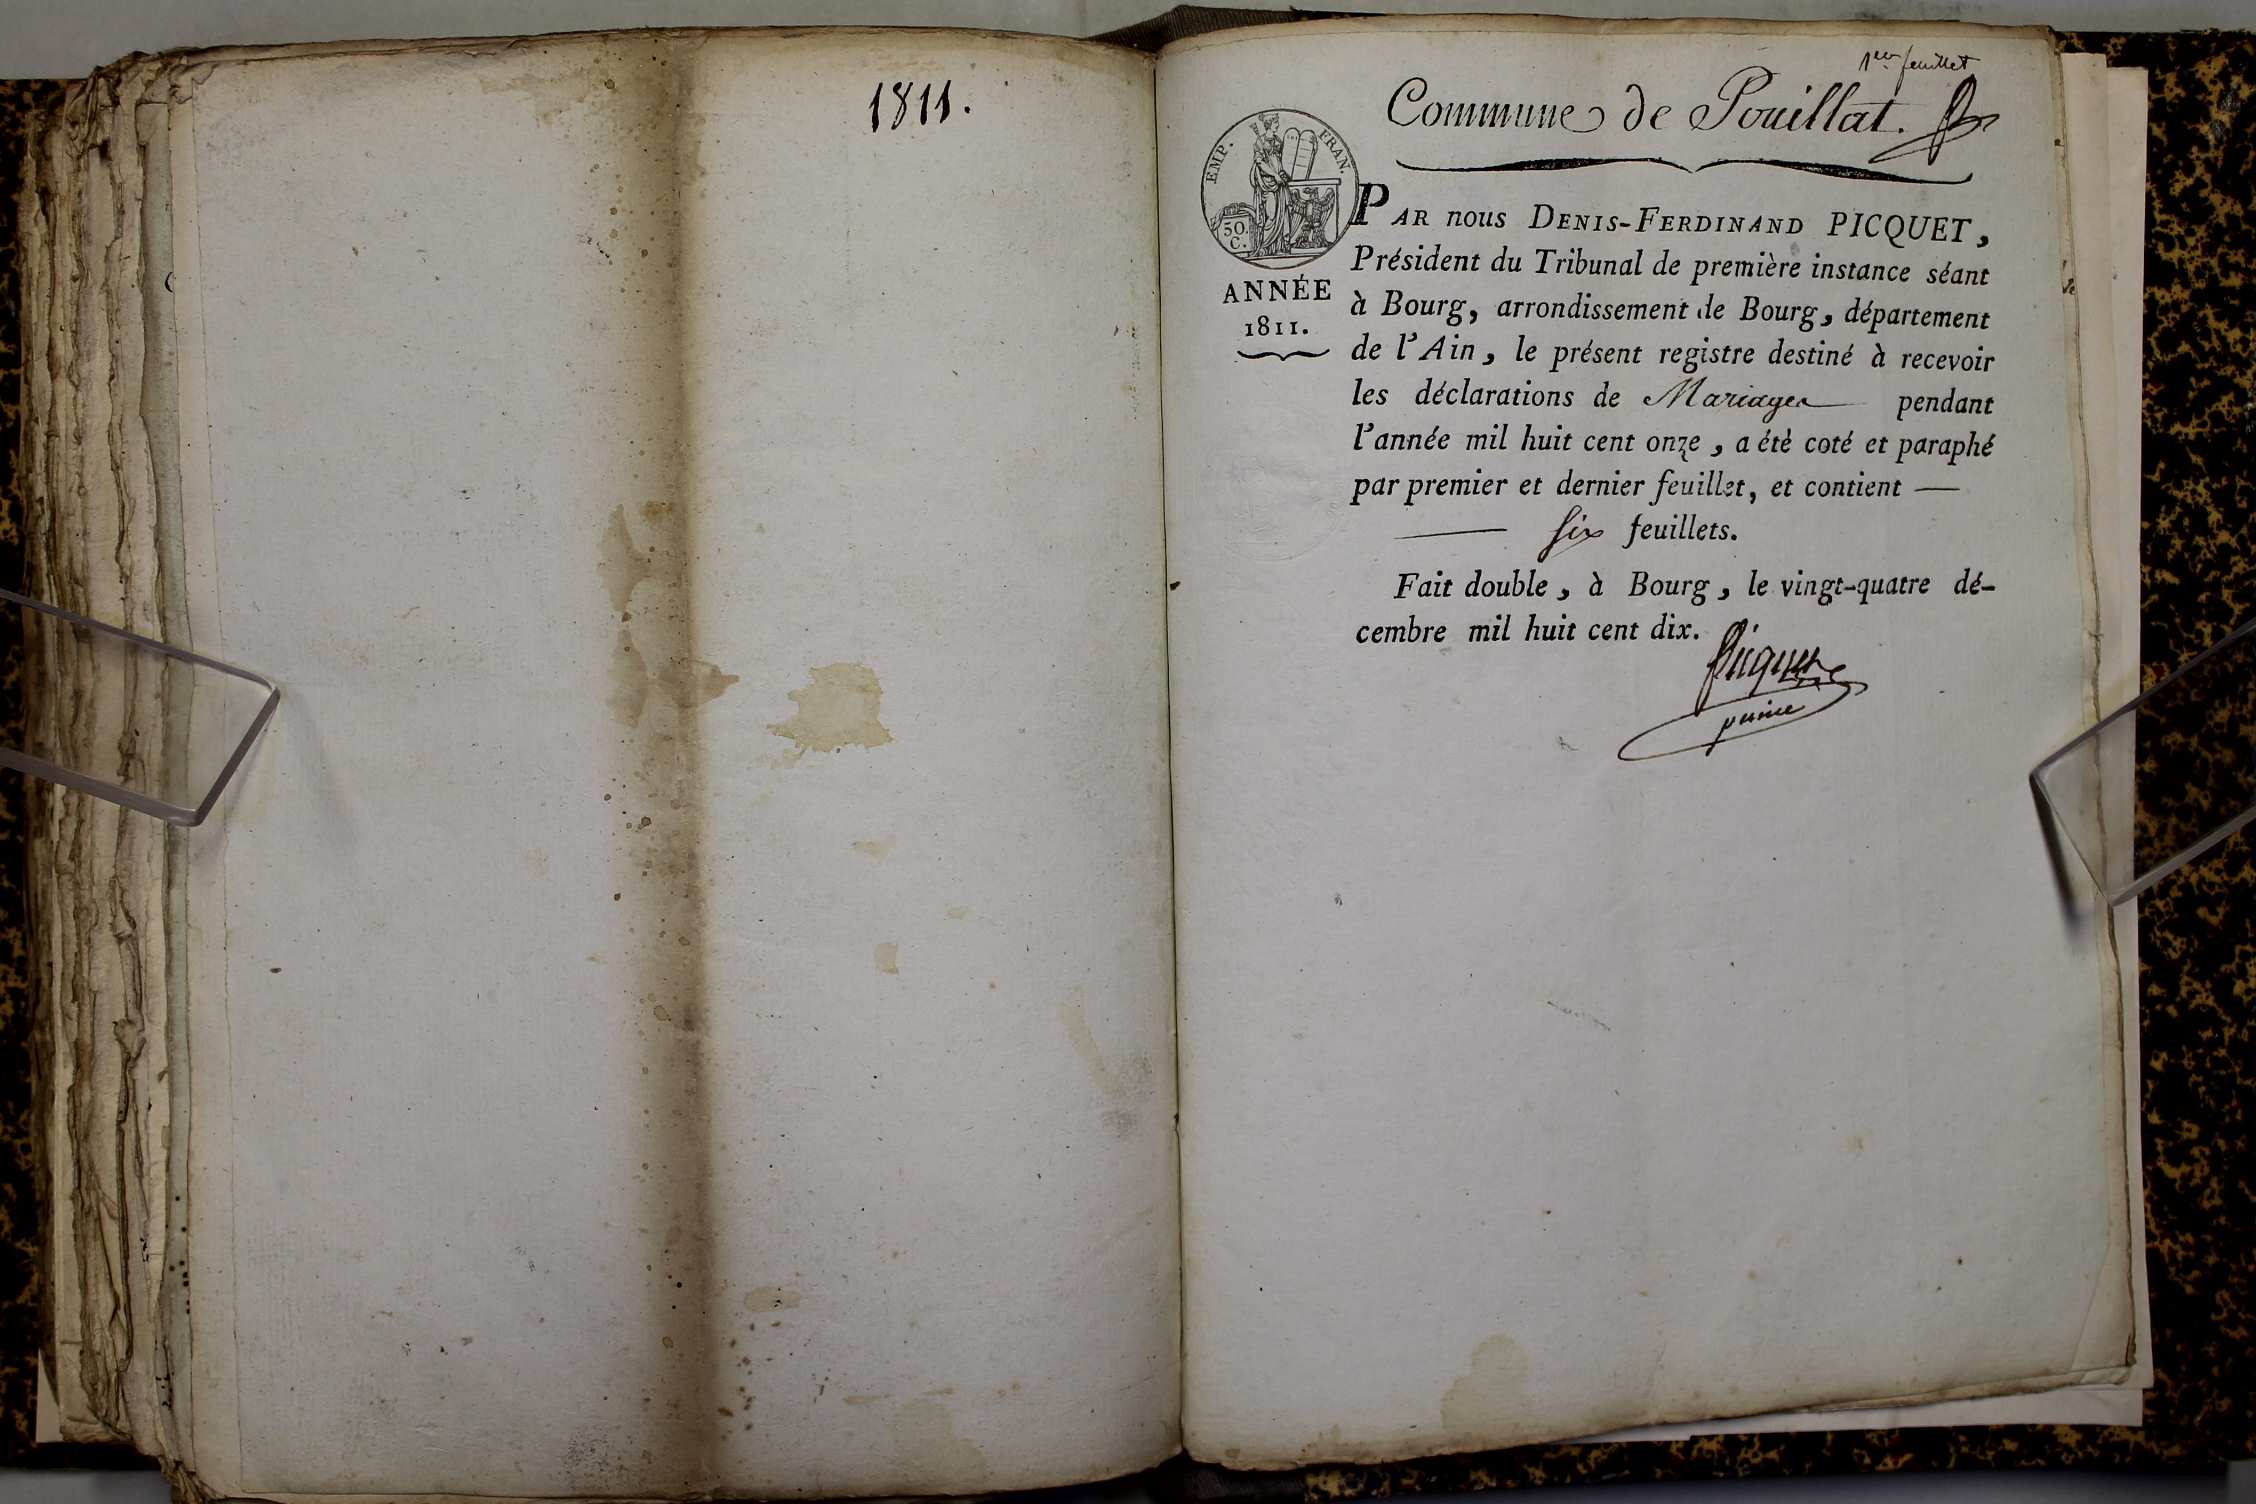 1811.
1er feuillet
Commune de Pouillat.
EMP. FRAN.
50.
C.
ANNÉE
1811.
PAR nous DENIS-FERDINAND PICQUET,
Président du Tribunal de première instance séant
à Bourg, arrondissement de Bourg, département
de l'Ain, le présent registre destiné à recevoir
les déclarations de Mariages pendant
l'année mil huit cent onze, a été coté et paraphé
par premier et dernier feuillet, et contient —
— six feuillets.
Fait double, à Bourg, le vingt-quatre dé-
cembre mil huit cent dix.
Picquet